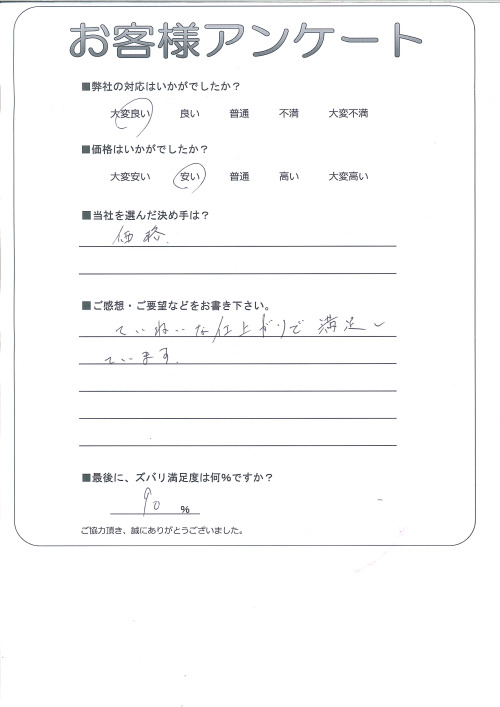 お客様アンケート
■弊社の対応はいかがでしたか？
大変良い 良い 普通 不満 大変不満
■価格はいかがでしたか？
大変安い 安い 普通 高い 大変高い
■当社を選んだ決め手は？
価格.
■ご感想・ご要望などをお書き下さい。
ていねいな仕上がりで満足し
ています.
■最後に、ズバリ満足度は何%ですか？
90 %
ご協力頂き、誠にありがとうございました。